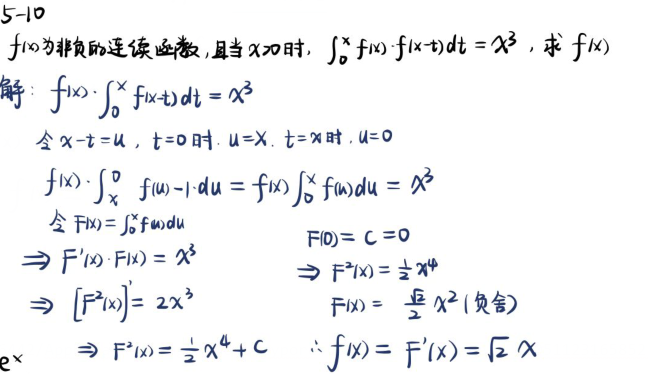 5-10
f(x)为非负的连续函数,且当x>0时, ∫₀ˣ f(x)·f(x-t)dt = x³ , 求 f(x)
解: f(x)·∫₀ˣ f(x-t)dt = x³
令 x-t=u , t=0时. u=x. t=x时. u=0
f(x)·∫ₓ⁰ f(u)-1·du = f(x)∫₀ˣ f(u)du = x³
令 F(x)=∫₀ˣ f(u)du
⇒ F'(x)·F(x) = x³
⇒ [F²(x)]' = 2x³
⇒ F²(x) = ½x⁴ + C
F(0) = C = 0
⇒ F²(x) = ½x⁴
F(x) = √2/2 x² (负舍)
∴ f(x) = F'(x) = √2 x
eˣ